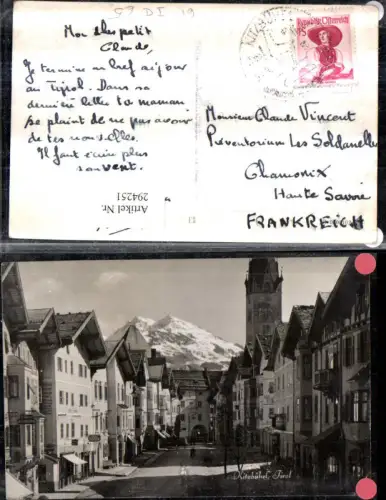 Mon cher petit
Claude,
Je termine un bref séjour
au Tyrol. Dans sa
dernière lettre ta maman
se plaint de ne pas avoir
de tes nouvelles.
Il faut écrire plus
souvent.
Artikel Nr.
294251
KITZBÜHEL
Republik Österreich
Monsieur Claude Vincent
Préventorium Les Soldanelles
Chamonix
Haute Savoie
FRANKREICH
Kitzbühel, Tirol